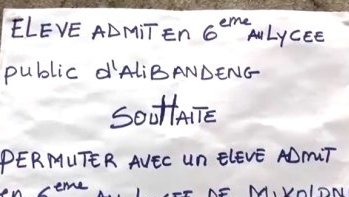 ELEVE ADMIT En 6eme AU LYCEE
public d'ALIBANDENG
SOUHAITE
PERMUTER AVEC un ELEVE ADMIT
en 6eme AU LYCEE DE MIKOLON